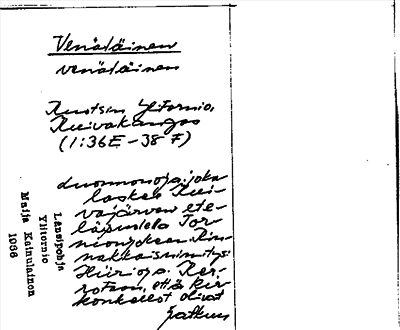 Venäläinen
venäläinen
Ruotsin Ylitornio,
Kuivakangas
(1:36E-38 F)
luonnonoja, joka
laskee Kui-
vajärven ete-
läpuolelta Tor-
nionjokeen. Rin-
nakkaisnimitys:
Hiirioja. Ker-
rotaan, että kir-
konkellot olivat
Jatkuu
Länsipohja
Ylitornio
Maija Keinulainen
1008